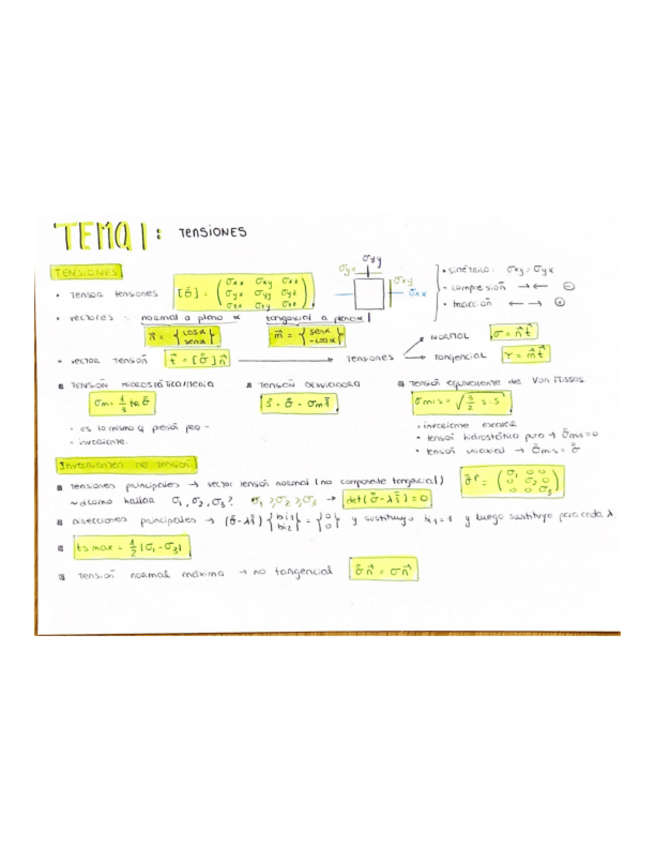 TEMA 1: TENSIONES
TENSIONES
• TENSOR TENSIONES [σ̄] = (σxx σxy σxz / σyx σyy σyz / σzx σzy σzz)
σyy
σyx
σxy
σxx
• SIMÉTRICO: σxy = σyx
• compresión →← ⊖
• tracción ←→ ⊕
• vectores: normal a plano α tangencial a plano α
n⃗ = {cosα / senα} m⃗ = {senα / -cosα}
• vector Tensión t⃗ = [σ̄] n⃗ → TENSIONES
NORMAL σ = n⃗ t⃗
TANGENCIAL τ = m⃗ t⃗
TENSIÓN HIDROSTÁTICA/MEDIA
σm = 1/3 tr σ̄
• es lo mismo q presión pero -
• invariante.
TENSIÓN DESVIADORA
s̄ = σ̄ - σm Ī
Tensión equivalente de Von Misses.
σmis = √(3/2 s:s)
• invariante escalar
• tensión hidrostática pura → σ̄mis = 0
• tensión uniaxial → σ̄mis = σ̄
Invariantes de tensión
Tensiones principales → vector tensión normal (no componente tangencial)
σ̄P = (σ1 0 0 / 0 σ2 0 / 0 0 σ3)
¿cómo hallar σ1, σ2, σ3? σ1 ≥ σ2 ≥ σ3 → det(σ̄ - λĪ) = 0
Direcciones principales → (σ̄ - λĪ) {bi1 / bi2} = {0 / 0} y sustituyo bi1 = 1 y luego sustituyo para cada λ
ts max = 1/2 |σ1 - σ3|
Tensión normal máxima → no tangencial σ̄ n⃗ = σ n⃗